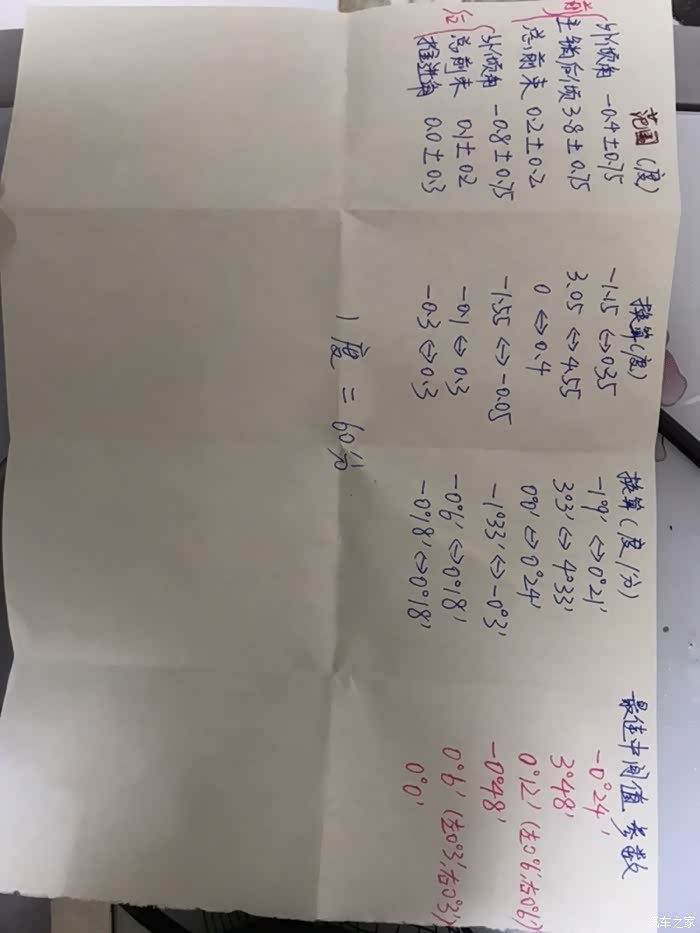 范围(度) 换算(度) 换算(度/分) 最佳中间值参数
前 外倾角 -0.4±0.75 -1.15⇔0.35 -1°9′⇔0°21′ -0°24′
主销后倾 3.8±0.75 3.05⇔4.55 3°3′⇔4°33′ 3°48′
总前束 0.2±0.2 0⇔0.4 0°0′⇔0°24′ 0°12′(左0°6′,右0°6′)
后 外倾角 -0.8±0.75 -1.55⇔-0.05 -1°33′⇔-0°3′ -0°48′
总前束 0.1±0.2 -0.1⇔0.3 -0°6′⇔0°18′ 0°6′(左0°3′,右0°3′)
推进角 0.0±0.3 -0.3⇔0.3 -0°18′⇔0°18′ 0°0′
1度=60分
汽车之家